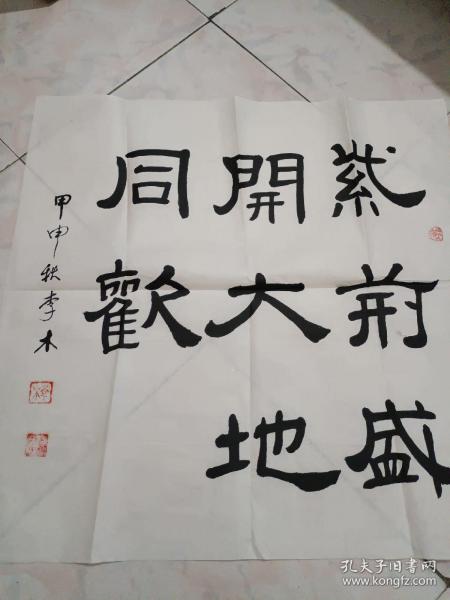 紫荊盛
開大地
同歡
甲申秋李木
孔夫子旧书网
www.kongfz.com